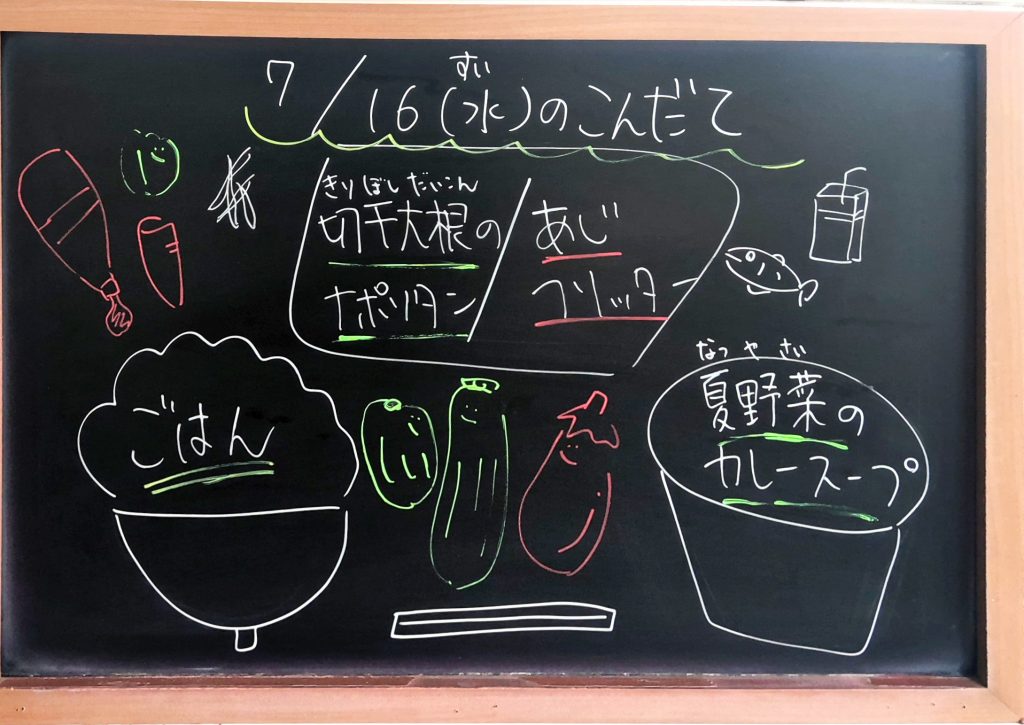 すい
7/16(水)のこんだて
きりぼしだいこん
切干大根の
ナポリタン
あじ
フリッター
ごはん
なつやさい
夏野菜の
カレースープ